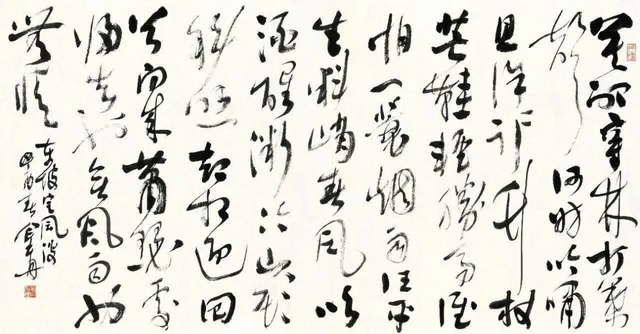 莫听穿林打葉
声何妨吟啸
且徐行竹杖
芒鞋轻胜马谁
怕一蓑烟雨任平
生料峭春风吹
酒醒微冷山头
斜照却相迎回
首向来萧瑟处
归去也无风雨也
无晴
东坡定风波
酉春